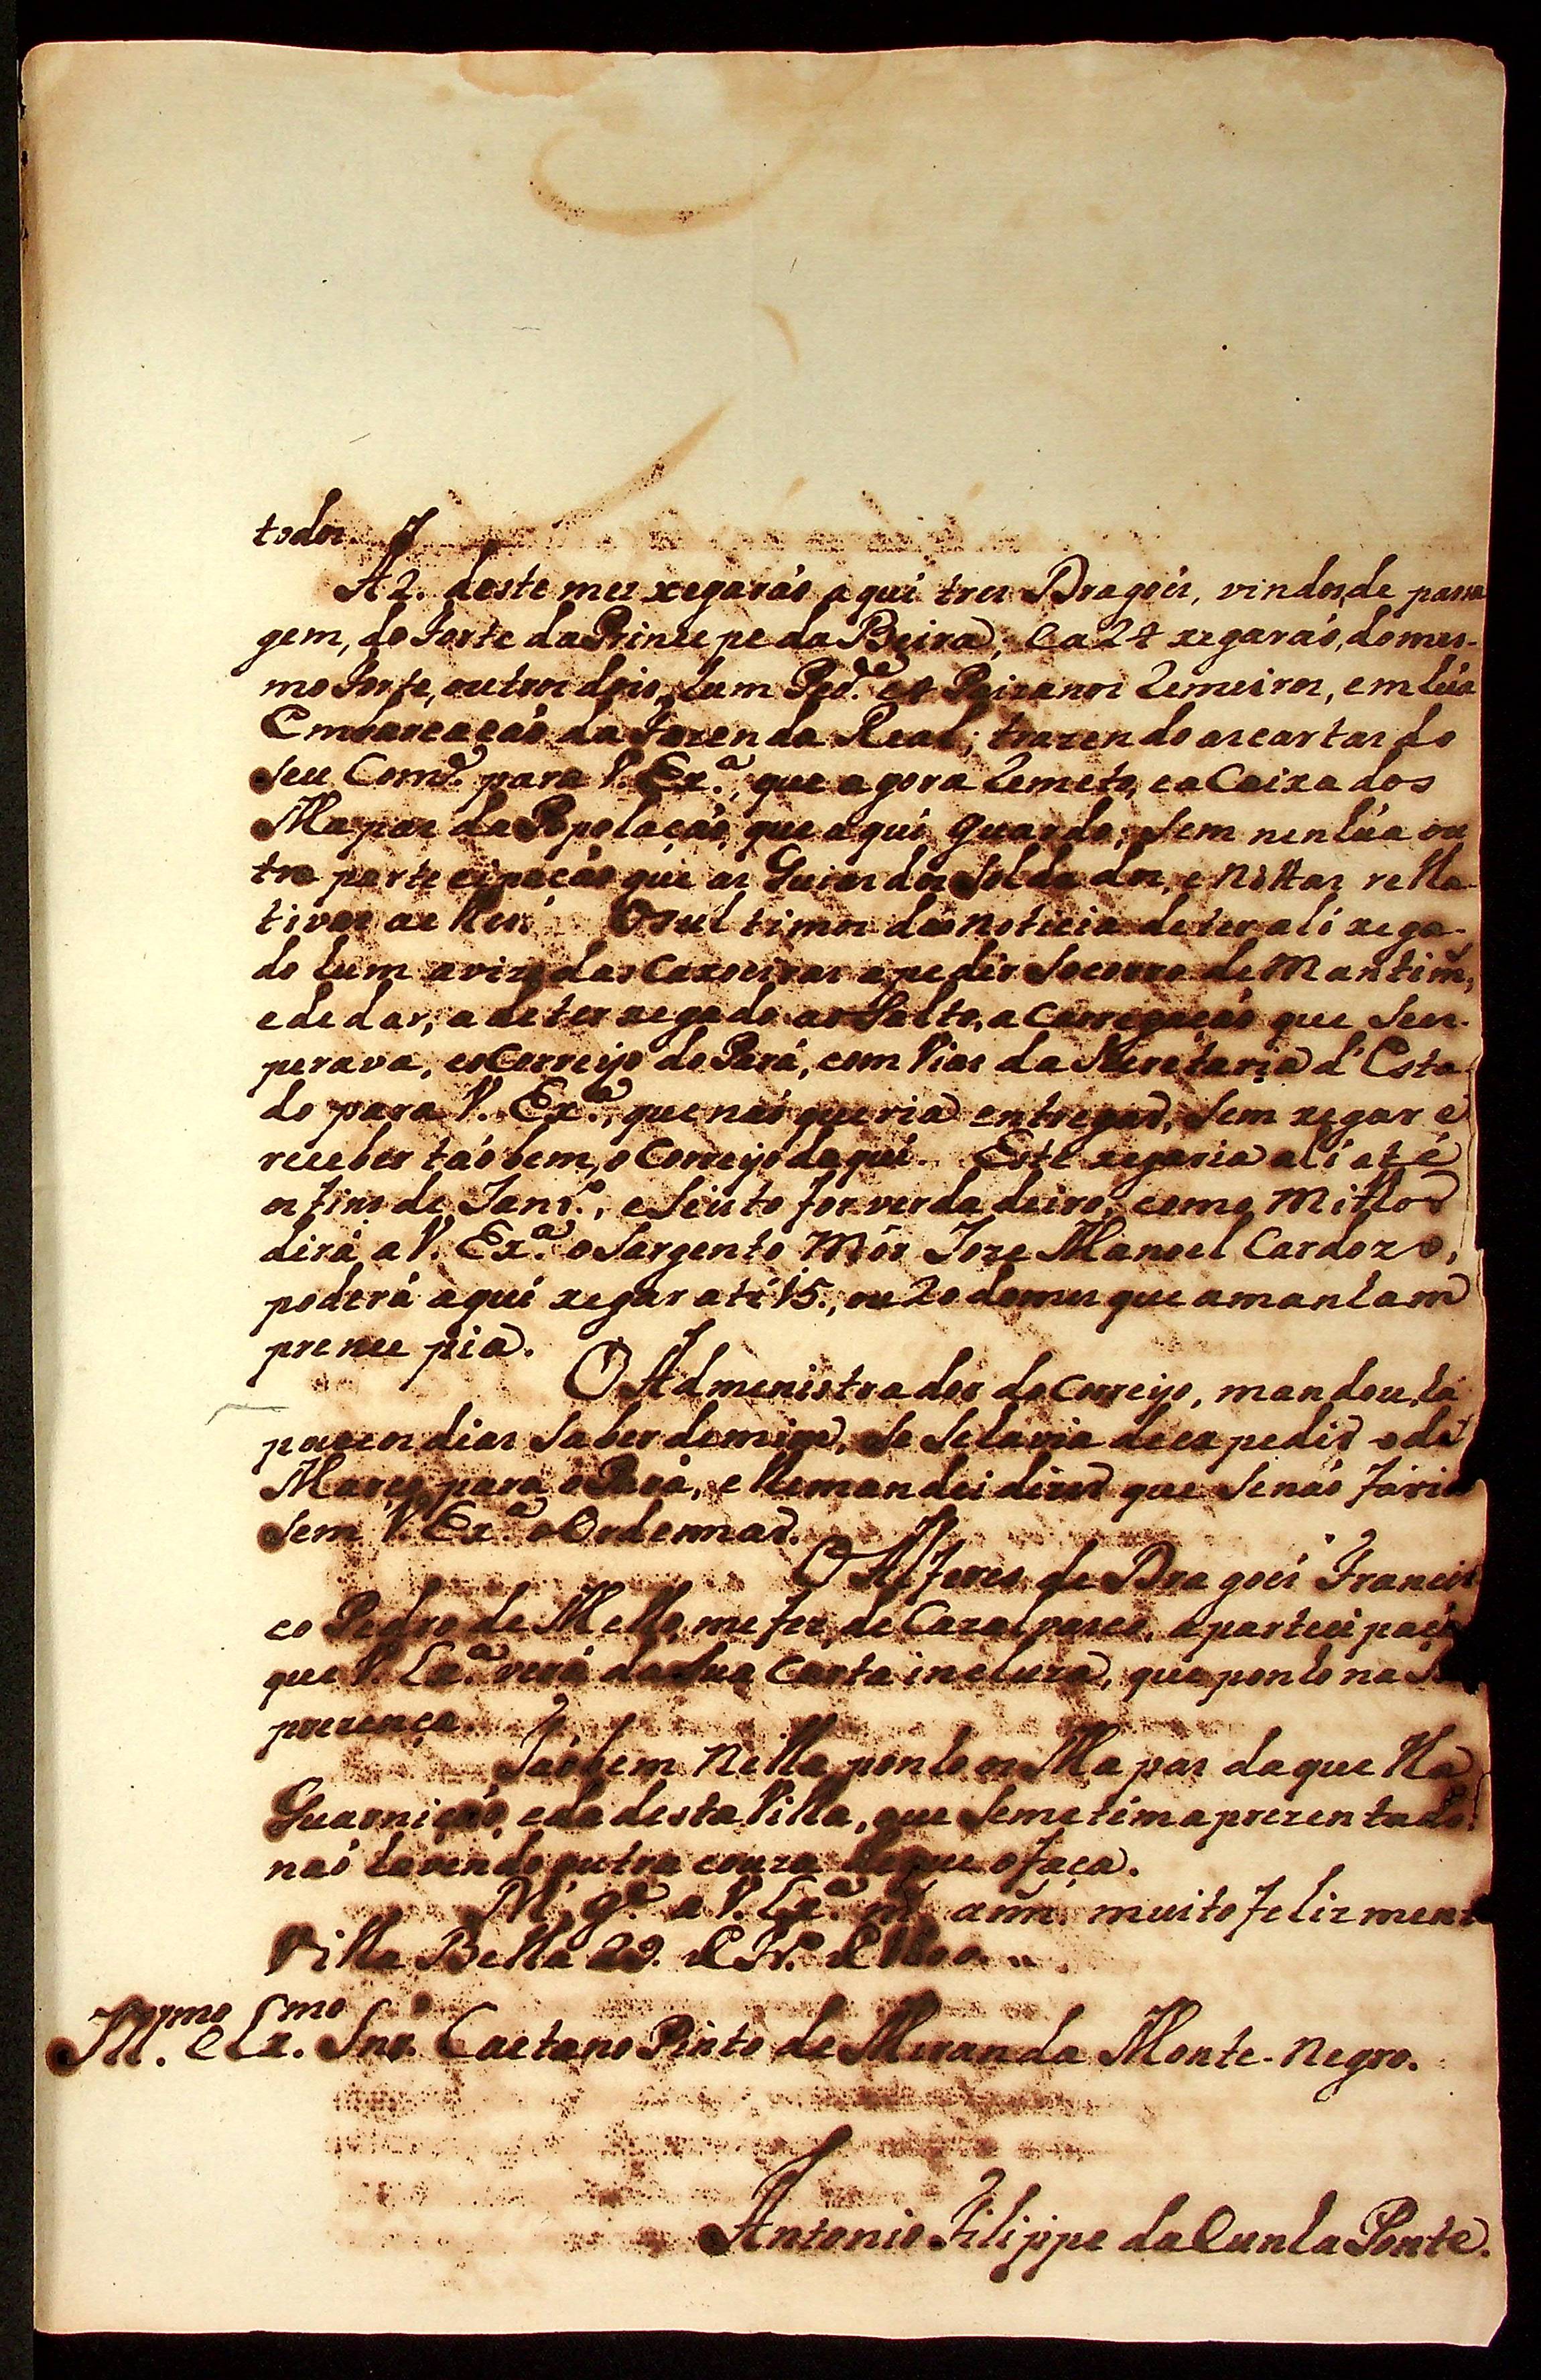 todos.
A 2. deste mes xegaráo aqui tres Dragóis, vindos, de passa
gem, do Forte da Princepe da Beira; e a 24 xegaráo, do mes-
mo Forte, outros dois, hum Ped.e e 4 Paizanos Remeiros, em húa
Embarcaçáo da Fazenda Real; trazendo as cartas do
seu Com.e para V. Ex.a, que agora Remeto, e a Caixa dos
Mapas da Popolaçáo, que aqui guardo; sem nenhúa ou
tra partecipaçáo que as Guias dos Soldados, e Nottas rella
tivas a elles. Os ultimos dáo noticia de ter ali xega-
do hum avizo das Caxoeiras a pedir socorro de Mantim.,
e de dar, a de ter xegado ao Salto, a Carregaçáo que seu-
perava, e o Correyo do Pará, com Vias da Secretaria d'Esta
do para V. Ex.a, que náo queria entregar, sem xegar e
receber táobem, o Correyo daqui. Este xegaria ali até
os fins de Janr.o, e se isto for verdadeiro, como milhor
dirá a V. Ex.a o Sargento Mór Joze Manoel Cardozo,
poderá aqui xegar até 15., ou 20 do mes que amanham
prencepia.
O Admenistrador do Correyo, mandou, há
poucos dias saber de mim, se se havia de expedir o de
Março para o Pará, e lhe mandei dizer que se náo faria
sem V. Ex.a o Ordennar.
O Alferes de Dragóis Francis
co Pedro de Mello, me fez, de Cazalvasco, a partecipaçáo
que V. Ex.a verá da sua Carta incluza, que ponho na Sua
prezença.
Táobem nella ponho os Mapas daquella
Guarniçáo, e da desta Villa, que se me tem aprezentado.
náo havendo outra couza de que o faça.
N. S. g.e a V. Ex.a m.s ann. muito felizment
Villa Bella 29. de Fr.o de 1800.
Ill.mo e Ex.mo Snr. Caetano Pinto de Miranda Monte-Negro.
Antonio Filippe da Cunha Ponte.